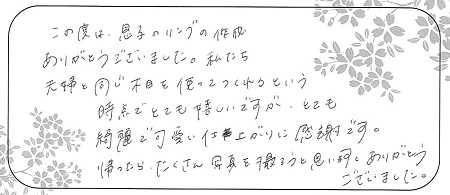 この度は、息子のリングの作成
ありがとうございました。私たち
夫婦と同じ木目を使ってつくれるという
時点でとても嬉しいですが、とても
綺麗で可愛い仕上がりに感謝です。
帰ったら、たくさん写真を撮ろうと思います。ありがとう
ございました。